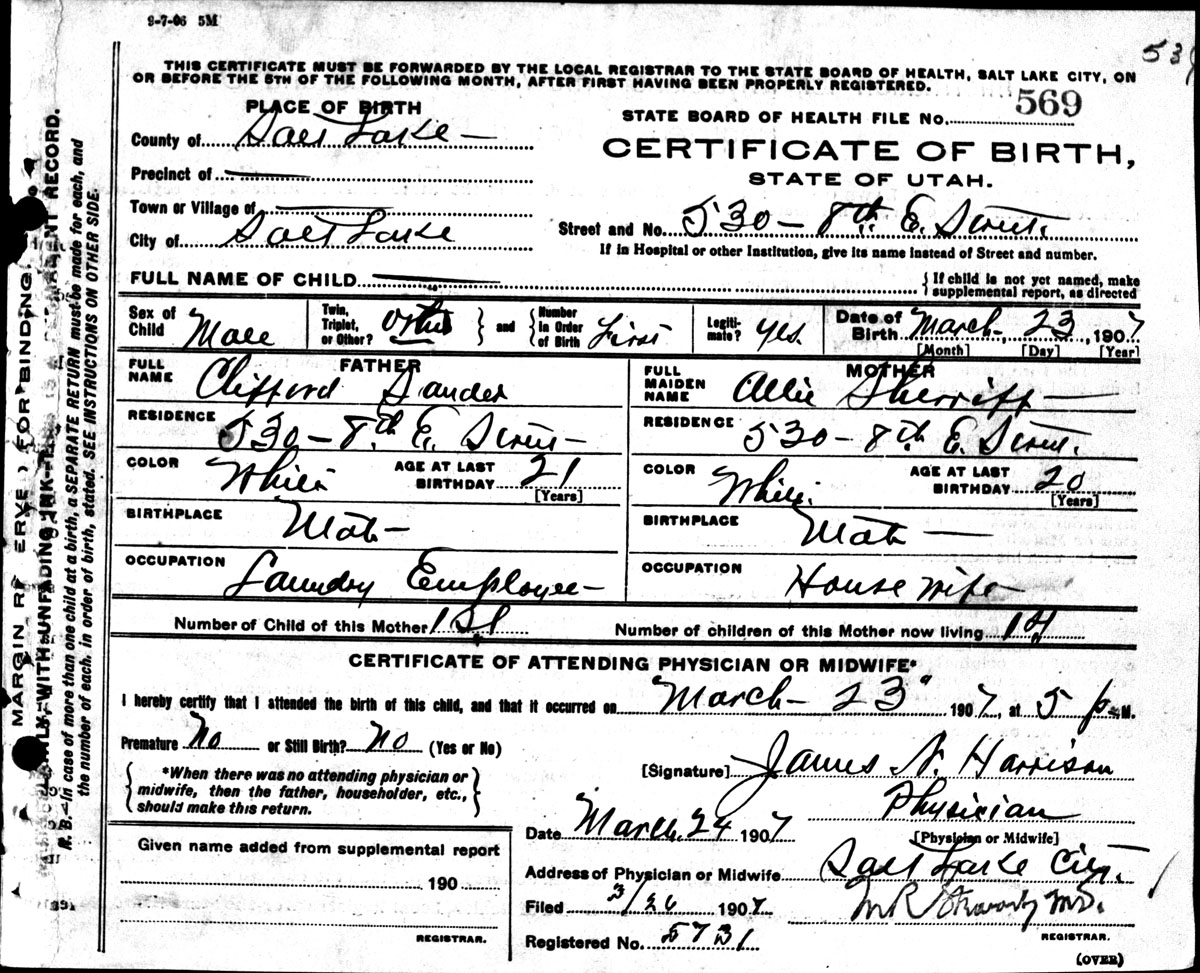 9-7-06 5M
53
THIS CERTIFICATE MUST BE FORWARDED BY THE LOCAL REGISTRAR TO THE STATE BOARD OF HEALTH, SALT LAKE CITY, ON
OR BEFORE THE 5TH OF THE FOLLOWING MONTH, AFTER FIRST HAVING BEEN PROPERLY REGISTERED.
PLACE OF BIRTH
STATE BOARD OF HEALTH FILE No. 569
County of Salt Lake
CERTIFICATE OF BIRTH,
Precinct of
STATE OF UTAH.
Town or Village of
Street and No. 530 - 8th E. Street.
City of Salt Lake
If in Hospital or other Institution, give its name instead of Street and number.
FULL NAME OF CHILD
{ If child is not yet named, make
supplemental report, as directed
Sex of Child Male
Twin, Triplet, or Other? Other } and { Number in Order of Birth First
Legitimate? Yes.
Date of Birth March 23, 1907
[Month] [Day] [Year]
FATHER
MOTHER
FULL NAME Clifford Sander
FULL MAIDEN NAME Allie Sherriff
RESIDENCE 530 - 8th E. Street
RESIDENCE 530 - 8th E. Street.
COLOR White AGE AT LAST BIRTHDAY 21 [Years]
COLOR White. AGE AT LAST BIRTHDAY 20 [Years]
BIRTHPLACE
BIRTHPLACE
OCCUPATION Laundry Employee
OCCUPATION House wife
Number of Child of this Mother 1st
Number of children of this Mother now living 1
CERTIFICATE OF ATTENDING PHYSICIAN OR MIDWIFE*
I hereby certify that I attended the birth of this child, and that it occurred on March 23" 1907, at 5 p.M.
Premature No or Still Birth? No (Yes or No)
*When there was no attending physician or
midwife, then the father, householder, etc.,
should make this return.
[Signature] James N. Harrison
Physician
[Physician or Midwife]
Date March 24 1907
Given name added from supplemental report
Address of Physician or Midwife Salt Lake City.
190
Filed 3/26 1907
M.D.
REGISTRAR.
Registered No. 5731
REGISTRAR.
(OVER)
MARGIN RESERVED FOR BINDING
WITH UNFADING INK
PERMANENT RECORD.
N. B.—In case of more than one child at a birth, a SEPARATE RETURN must be made for each, and
the number of each, in order of birth, stated. SEE INSTRUCTIONS ON OTHER SIDE.